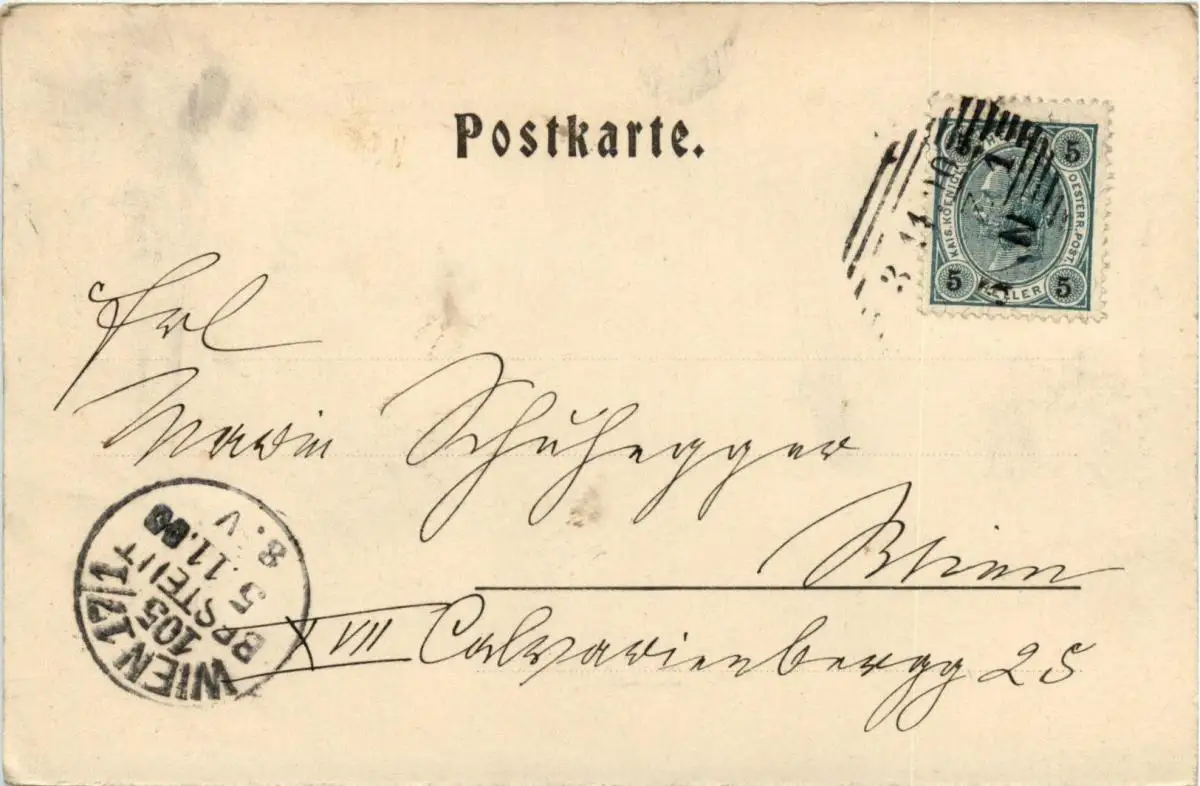 Postkarte.
KAIS. KOENIGL. OESTERR. POST.
5 5 5
HELLER
Frl
Marie Schuhegger
Wien
XVII Calvarienbergg 25
WIEN 17/1
105
BESTELLT
5.11.00
8.V